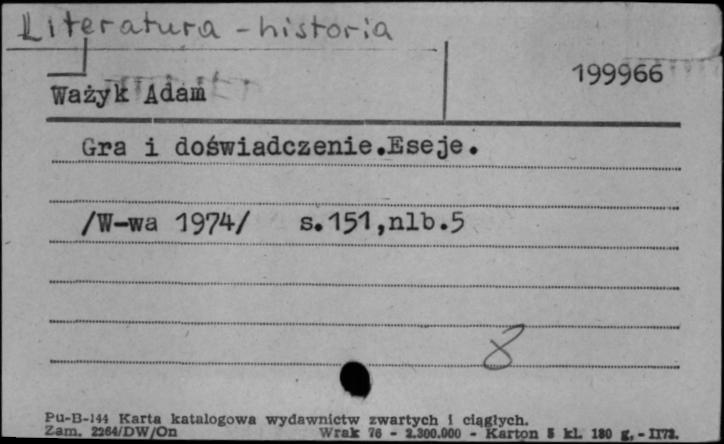 Literatura - historia
199966
Ważyk Adam
Gra i doświadczenie.Eseje.
/W-wa 1974/ s.151,nlb.5
8
Pu-B-144 Karta katalogowa wydawnictw zwartych i ciągłych.
Zam. 2264/DW/On Wrak 76 - 2.300.000 - Karton 5 kl. 180 g, - II73.